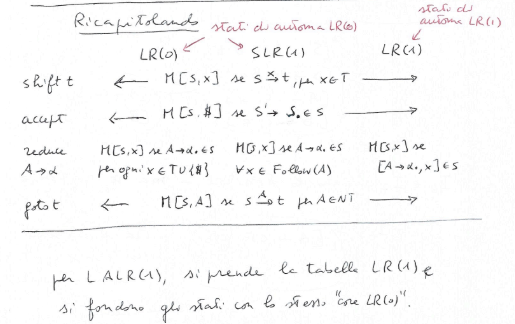 Ricapitolando
stati di automa LR(0)
stati di automa LR(1)
LR(0) SLR(1) LR(1)
shift t ← M[s,x] se s →x t, per x∈T →
accept ← M[s,$] se S'→ S. ∈ s →
reduce M[s,x] se A→α. ∈ s M[s,x] se A→α. ∈ s M[s,x] se
A→α per ogni x ∈ T∪{$} ∀x ∈ Follow(A) [A→α., x] ∈ s
goto t ← M[s,A] se s →A t per A∈NT →
per LALR(1), si prende la tabella LR(1) e
si fondono gli stati con lo stesso "core LR(0)".